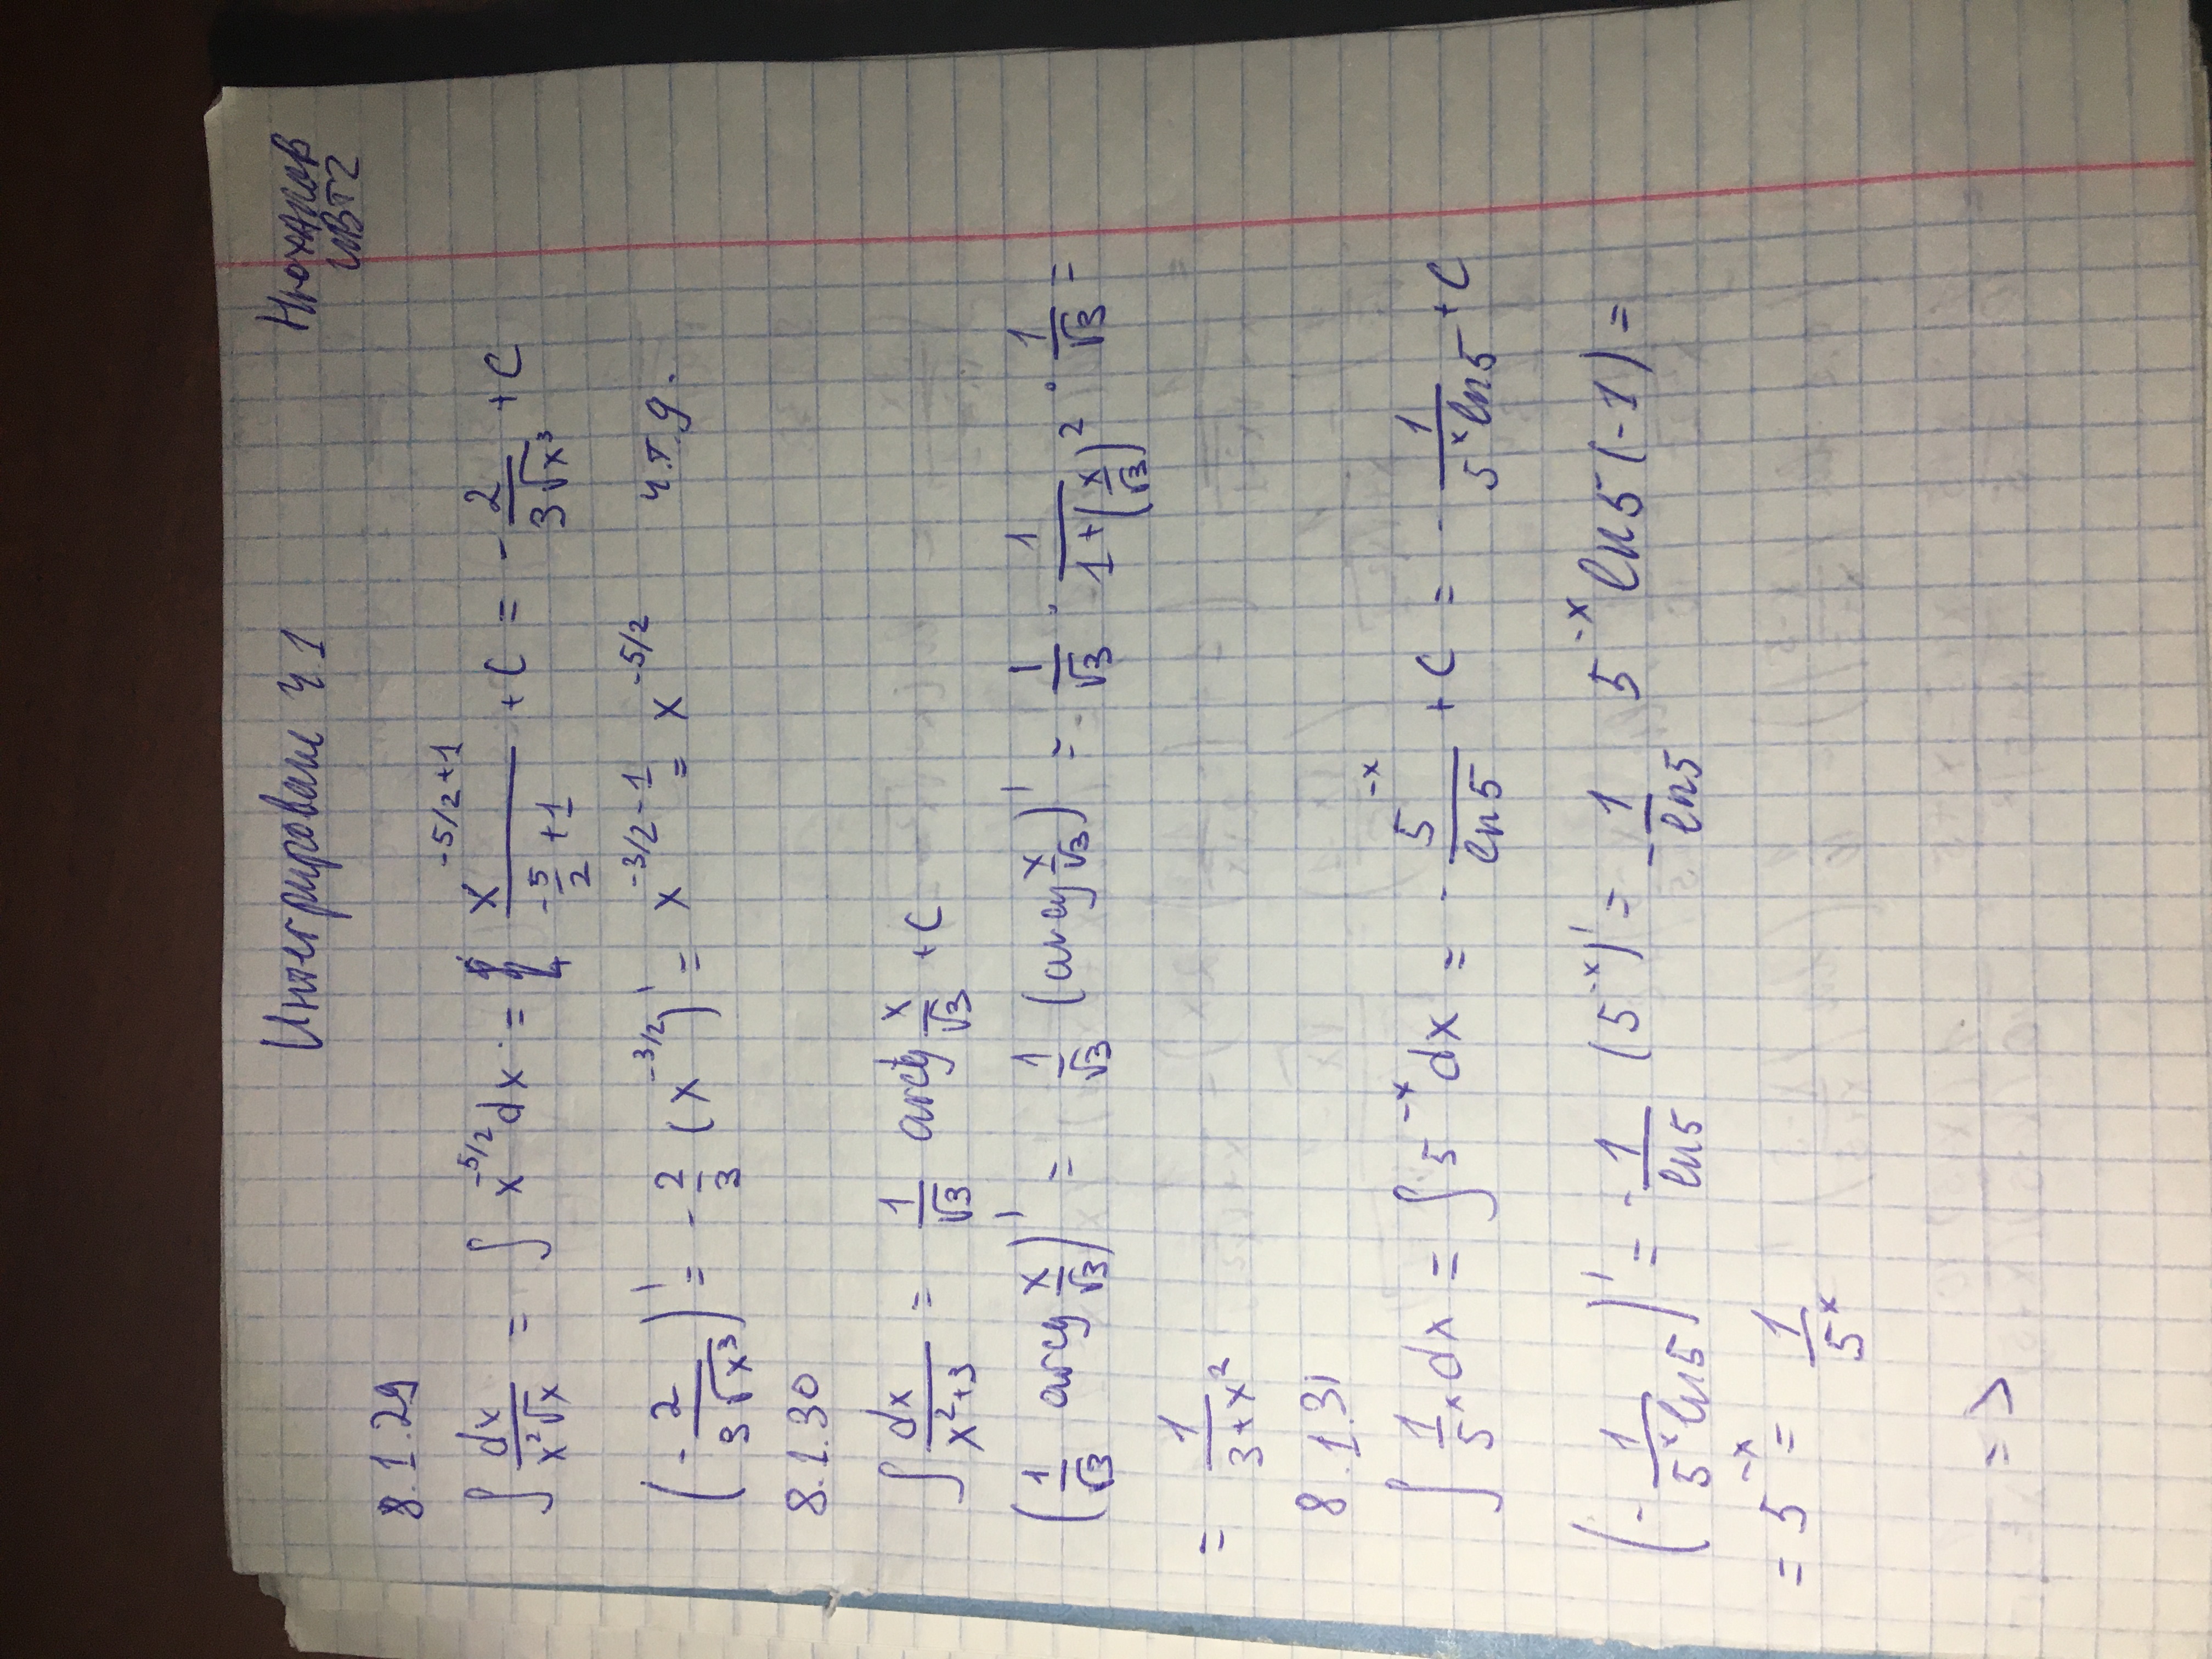 Интегрирование ч.1
ИВТ2
8.1.29
∫ dx/(x²√x) = ∫ x^(-5/2) dx = x^(-5/2+1)/(-5/2+1) + C = -2/(3√x³) + C
(-2/(3√x³))' = -2/3 (x^(-3/2))' = x^(-3/2-1) = x^(-5/2) ч.т.д.
8.1.30
∫ dx/(x²+3) = 1/√3 arctg x/√3 + C
(1/√3 arcg x/√3)' = 1/√3 (arcg x/√3)' = 1/√3 · 1/(1+(x/√3)²) · 1/√3 =
= 1/(3+x²)
8.1.31
∫ 1/5^x dx = ∫ 5^(-x) dx = -5^(-x)/ln5 + C = -1/(5^x ln5) + C
(-1/(5^x ln5))' = -1/ln5 (5^(-x))' = -1/ln5 5^(-x) ln5 (-1) =
= 5^(-x) = 1/5^x
=>